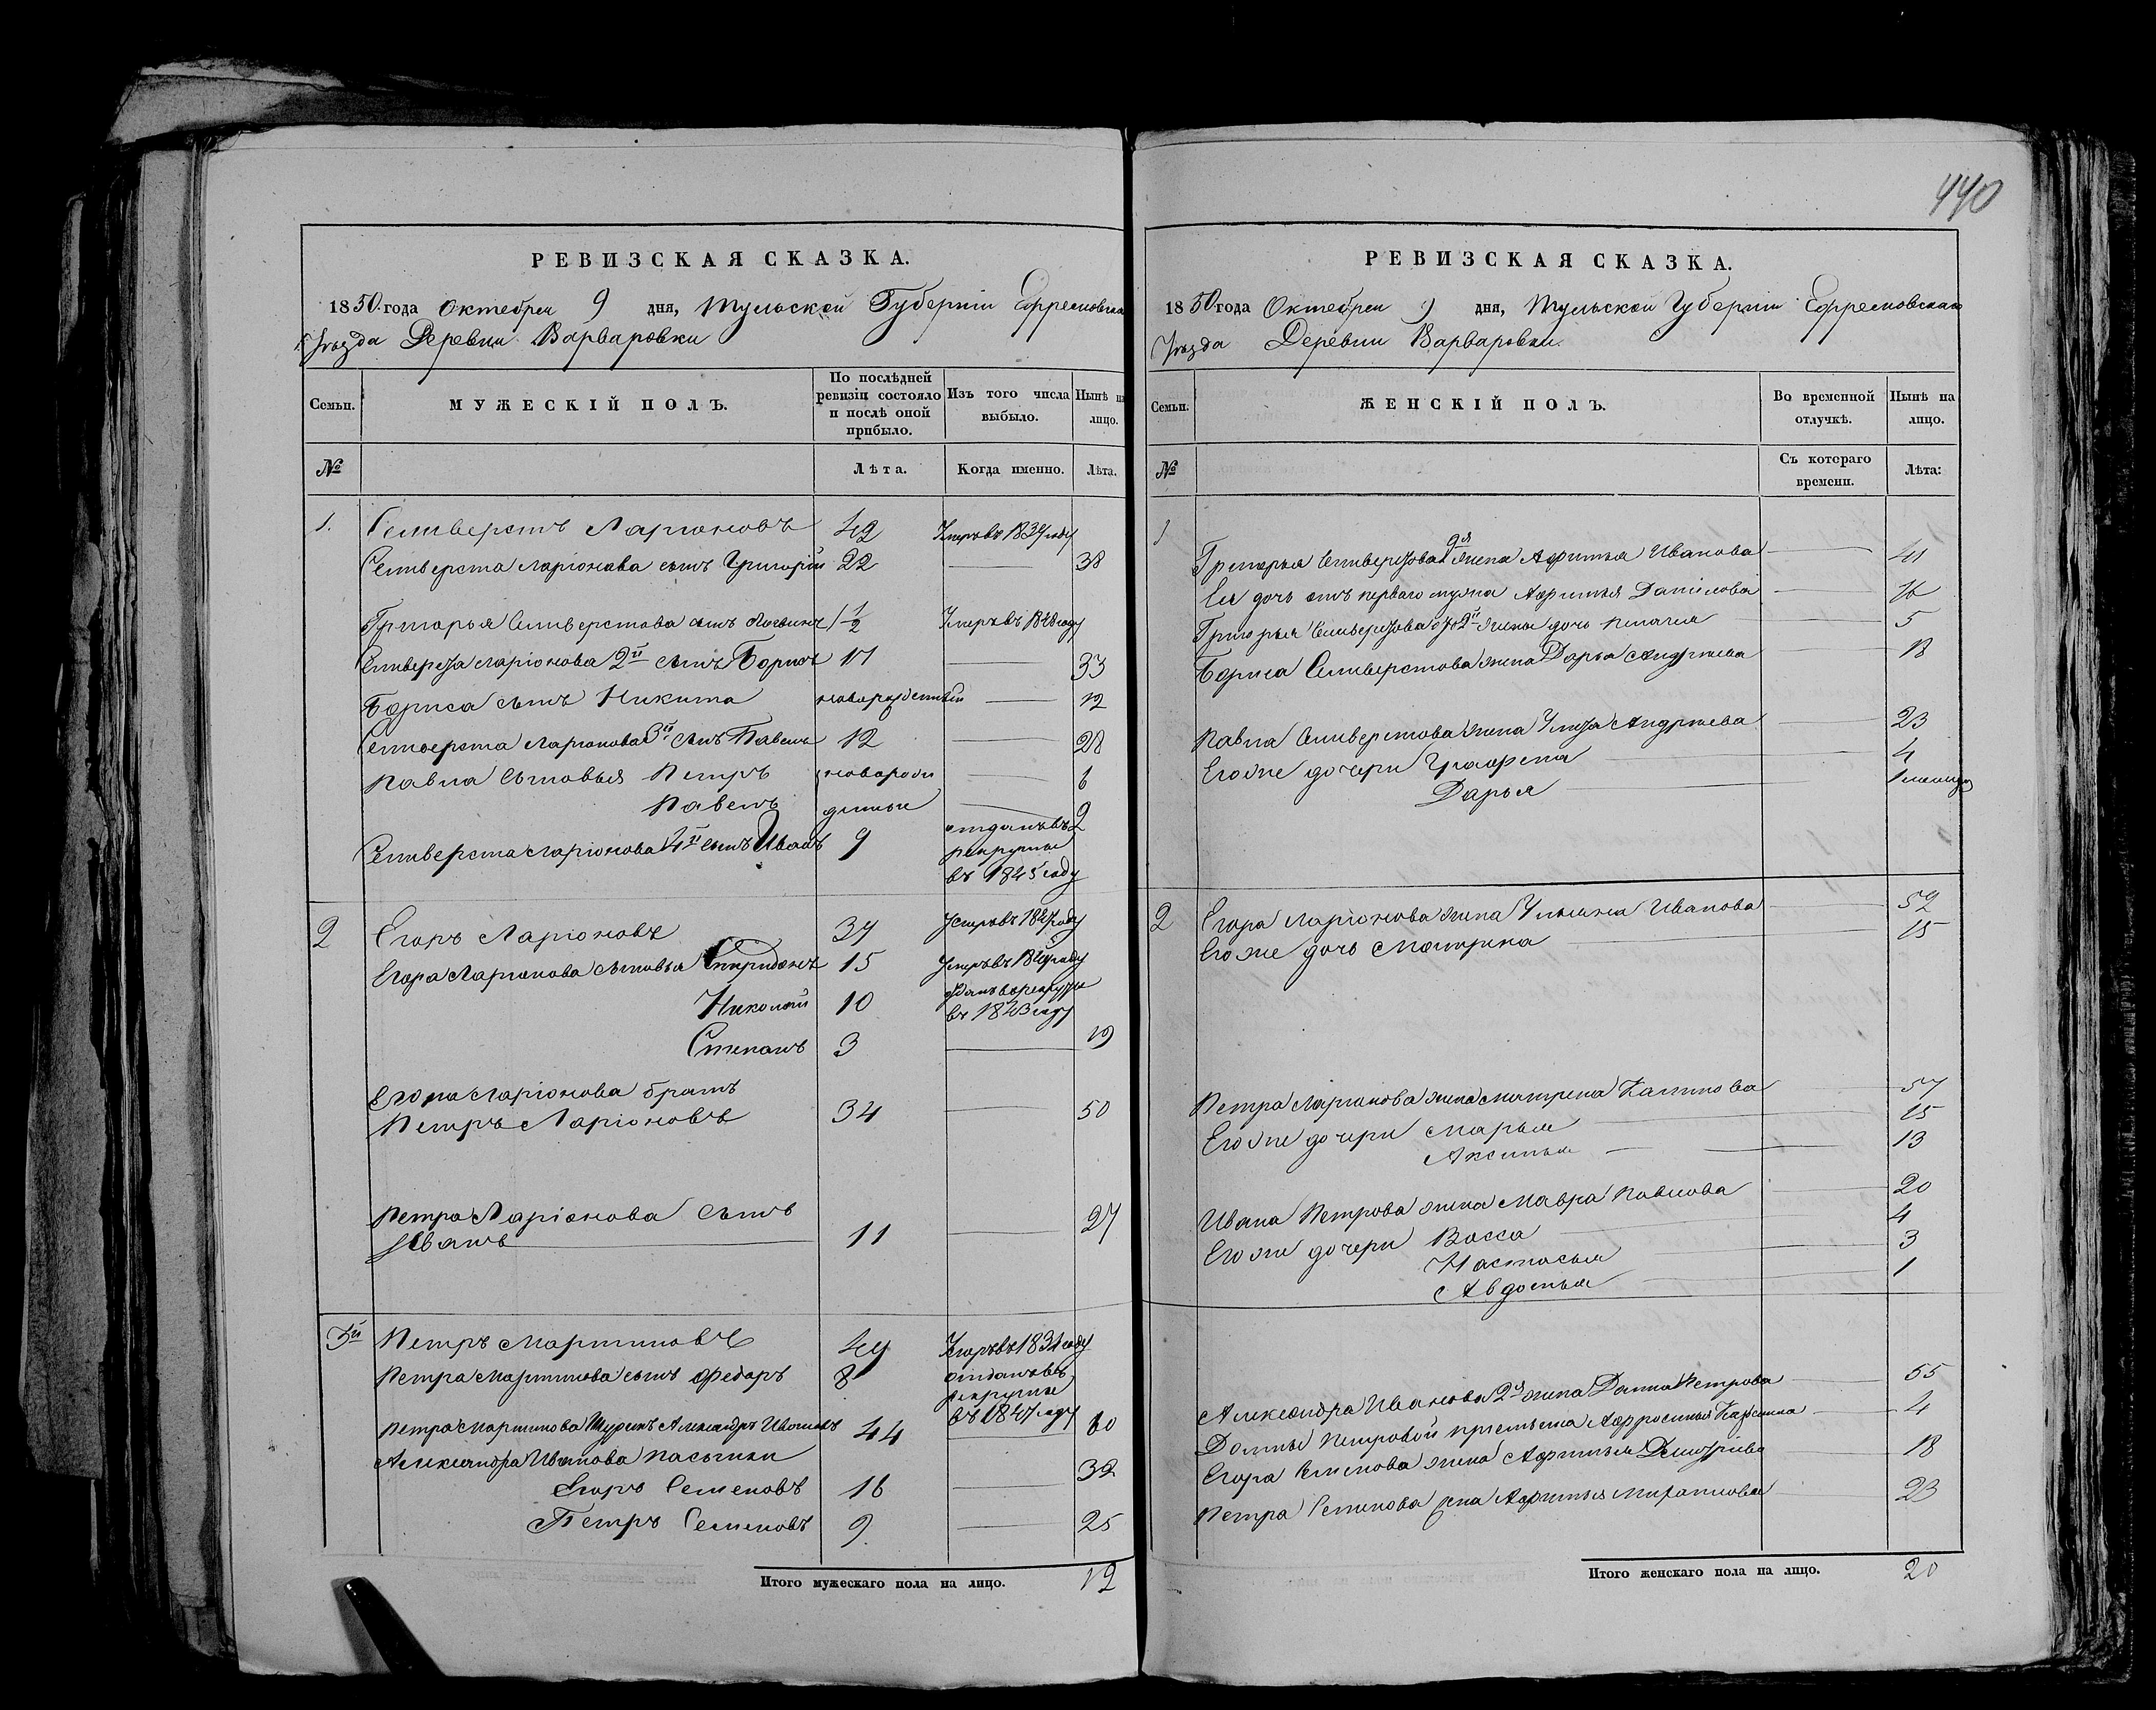 440
РЕВИЗСКАЯ СКАЗКА.
1850 года Октября 9 дня, Тульской Губерніи Ефремовска
Уѣзда Деревни Варваровки
Семьи. МУЖЕСКІЙ ПОЛЪ. По послѣдней ревизіи состояло и послѣ оной прибыло. Изъ того числа выбыло. Нынѣ на лицо.
№ Лѣта. Когда именно. Лѣта.
1. Селиверстъ Ларіоновъ 42 Умеръ въ 1834 году
Селиверста Ларіонова сынъ Григорій 22 38
Григорья Селиверстова сынъ 1/2 Умеръ въ году
Селиверста Ларіонова 2й сынъ Борисъ 17 33
Бориса сынъ Никита новорожденный 12
Селиверста Ларіонова 3й сынъ Павелъ 12 28
Павла сыновья Петръ новорож 6
Павелъ денные 2
Селиверста Ларіонова 4й сынъ Иванъ 9 отданъ въ
рекруты
въ 1845 году
2 Егоръ Ларіоновъ 39 Умеръ въ году
Егора Ларіонова сыновья Спиридонъ 15 Умеръ въ году
Николай 10 въ рекруты
въ 1843 году
Степанъ 3 19
Егора Ларіонова братъ
Петръ Ларіоновъ 34 50
Петра Ларіонова сынъ
Иванъ 11 27
3й Петръ Мартиновъ 49 Умеръ въ 1834 году
Петра Мартинова сынъ Федоръ 8 отданъ въ
рекруты
въ 1847 году
Петра Мартинова Шуринъ Александръ Ивановъ 44 60
Александра Иванова пасынки
Егоръ Семеновъ 16 32
Петръ Семеновъ 9 25
Итого мужескаго пола на лицо. 12
РЕВИЗСКАЯ СКАЗКА.
1850 года Октября 9 дня, Тульской Губерніи Ефремовскаго
Уѣзда Деревни Варваровки.
Семьи. ЖЕНСКІЙ ПОЛЪ. Во временной отлучкѣ. Нынѣ на лицо.
№ Съ котораго времени. Лѣта:
1 Григорья Селиверстова 2я жена Афимья Иванова 41
Ея дочь отъ перваго мужа Афимья Данилова 16
Григорья Селиверстова отъ 2й жены дочь Пелагея 5
Бориса Селиверстова жена Дарья Андреева
Павла Селиверстова жена Андреева 23
Его же дочери Графена 4
Дарья
2 Егора Ларіонова жена Ульяна Иванова 52
Его же дочь Матрена 15
Петра Ларіонова жена Матрена 57
Его же дочери Марья 15
Аксинья 13
Ивана Петрова жена Мавра Павлова 20
Его же дочери Васса 4
Настасья 3
Авдотья 1
Александра Иванова 2я жена Домна Петрова 55
Домны Петровой Афросинья 4
Егора Семенова жена Афимья Дмитріева 18
Петра Семенова жена Афимья 23
Итого женскаго пола на лицо. 20